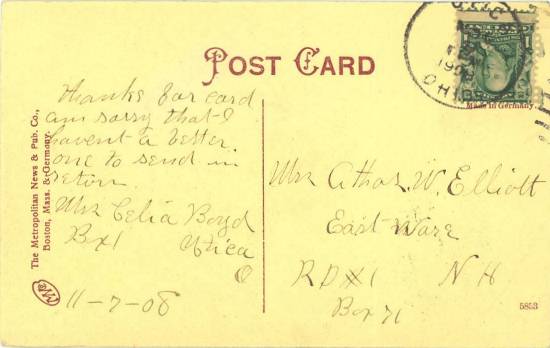 POST CARD
OHIO
1
Made in Germany.
The Metropolitan News & Pub. Co.,
Boston, Mass. & Germany.
thanks for card
am sorry that I
havent a better
one to send in
return.
Mrs Celia Boyd
Bx 1 Utica
O
11-7-08
Mrs Athos. W. Elliott
East Ware
RD #1 N H
Box 71
5853